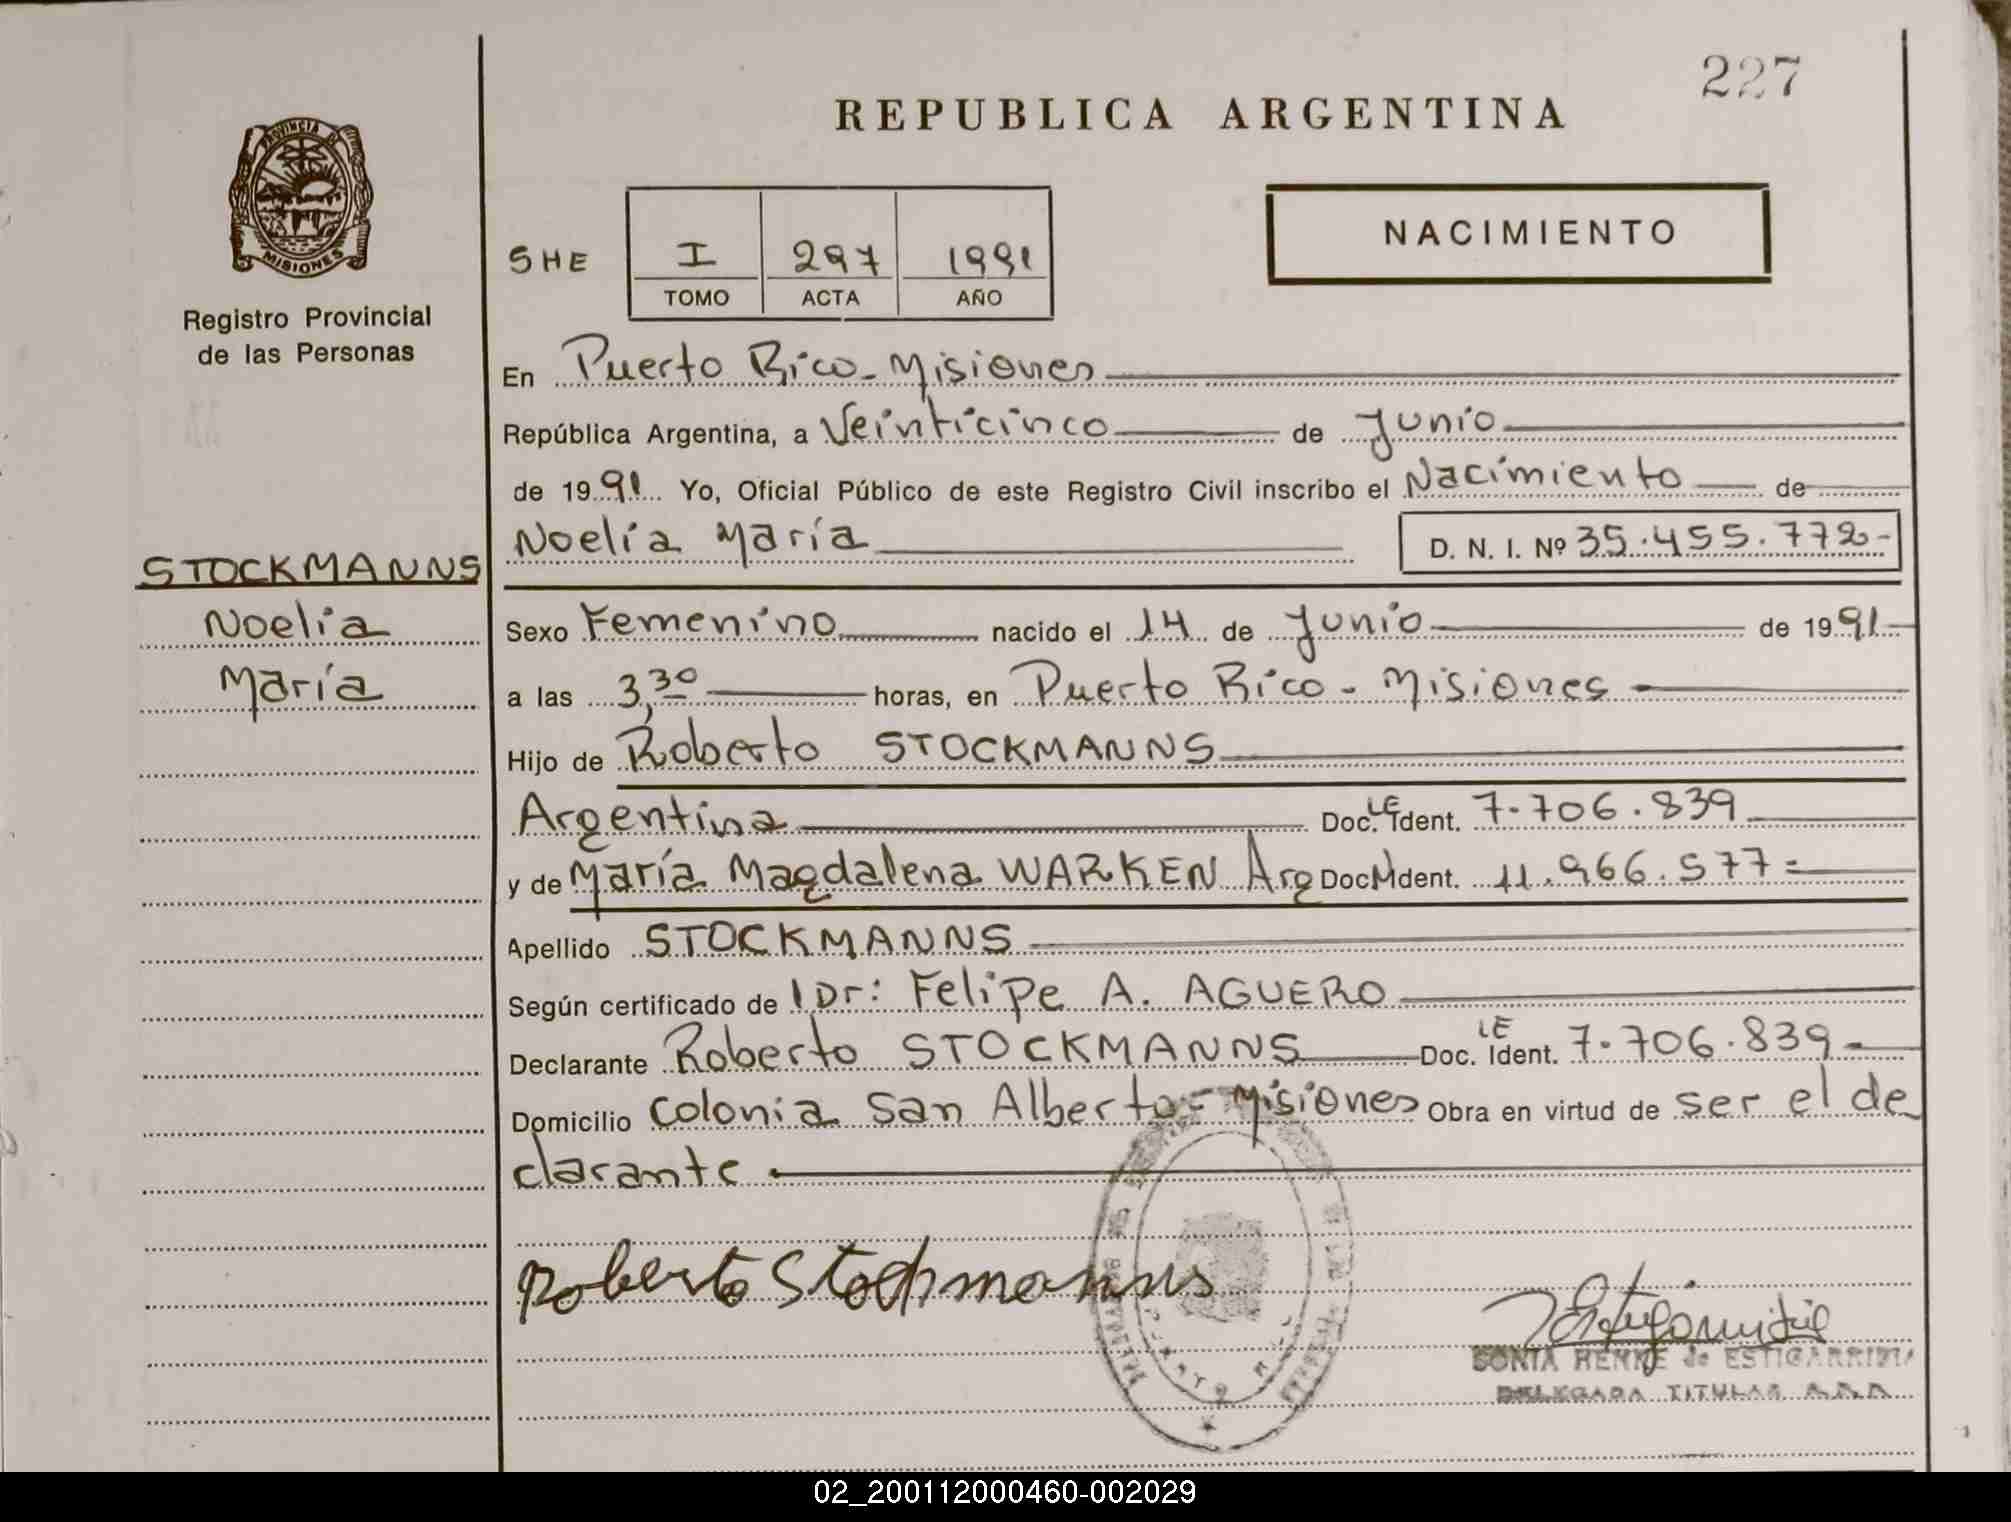 227
REPUBLICA ARGENTINA
PROVINCIA DE
MISIONES
Registro Provincial
de las Personas
NACIMIENTO
SHE I 297 1991
TOMO ACTA AÑO
En Puerto Rico - Misiones
República Argentina, a Veinticinco de Junio
de 1991 Yo, Oficial Público de este Registro Civil inscribo el Nacimiento de
Noelia María D. N. I. Nº 35.455.772-
STOCKMANNS
Noelia
María
Sexo Femenino nacido el 14 de Junio de 1991
a las 3,30 horas, en Puerto Rico - Misiones
Hijo de Roberto STOCKMANNS
Argentina Doc. LE Ident. 7.706.839
y de María Magdalena WARKEN Arg Doc Ident. 11.966.577=
Apellido STOCKMANNS
Según certificado de Dr: Felipe A. AGUERO
Declarante Roberto STOCKMANNS Doc. LE Ident. 7.706.839-
Domicilio Colonia San Alberto - Misiones Obra en virtud de ser el de
clarante
Roberto Stockmanns
SONIA HENKE de ESTIGARRIBIA
DELEGADA TITULAR
02_200112000460-002029